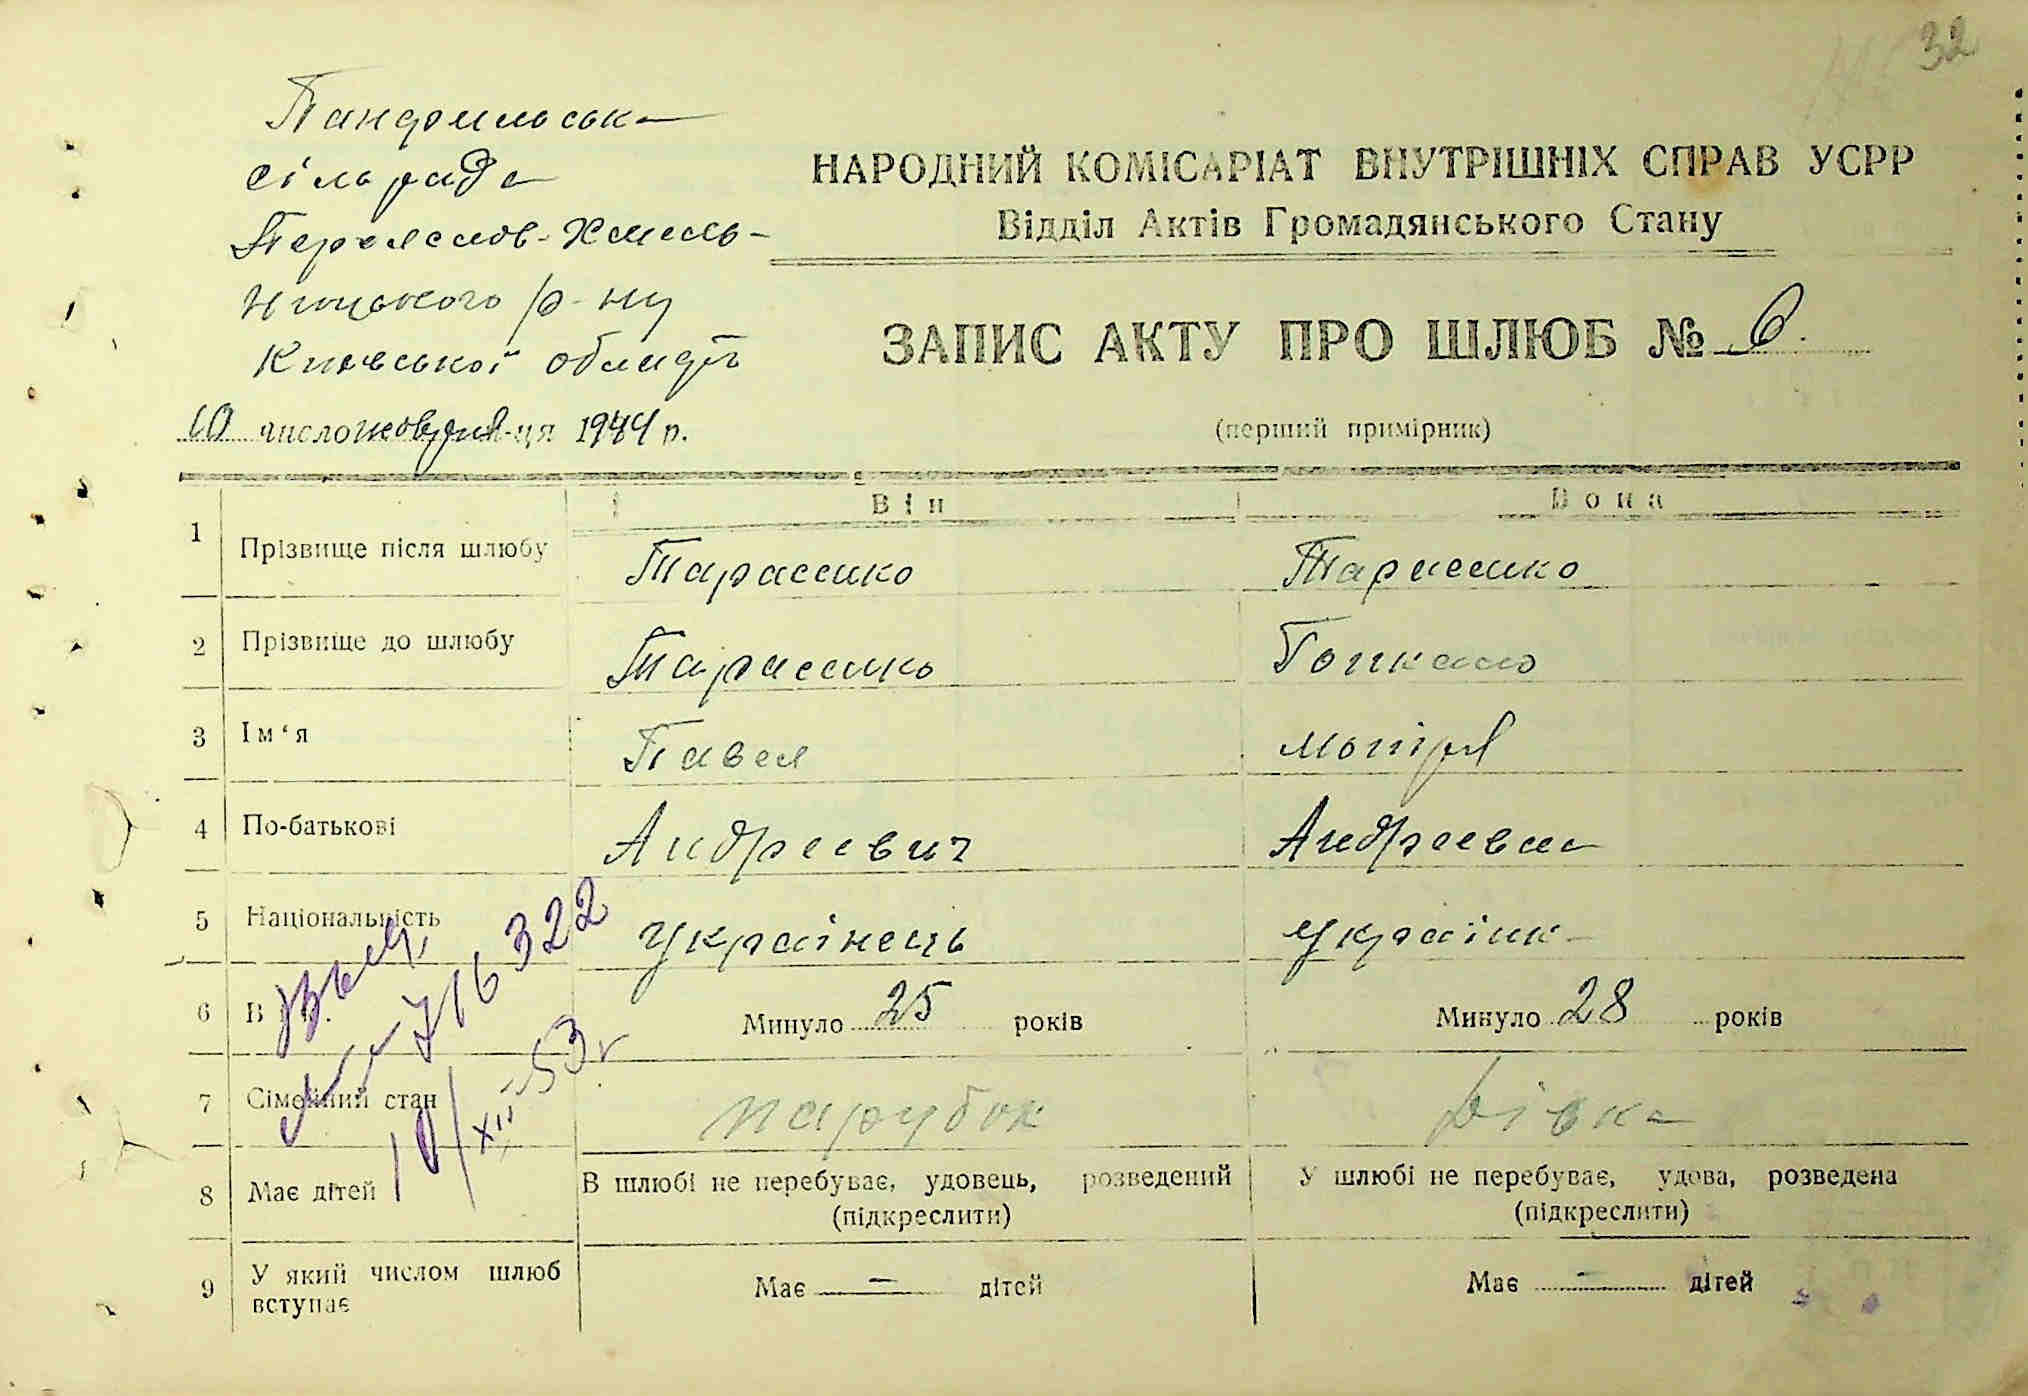 32
Панфильська
сільрада
Переяслов-Хмель-
ницького р-ну
Київської області
10 число жовтня-ця 1944 р.
НАРОДНИЙ КОМІСАРІАТ ВНУТРІШНІХ СПРАВ УСРР
Відділ Актів Громадянського Стану
ЗАПИС АКТУ ПРО ШЛЮБ № 6.
(перший примірник)
Він Вона
1 Прізвище після шлюбу Тарасенко Тарасенко
2 Прізвище до шлюбу Тарасенко
3 Ім‘я Павел Мотря
4 По-батькові Андреевич Андреевна
5 Національність українець українк
6 В Минуло 25 років Минуло 28 років
7 Сімейний стан парубок Дівка
716322
10/XII-53 г
8 Має дітей В шлюбі не перебуває, удовець, розведений (підкреслити) У шлюбі не перебуває, удова, розведена (підкреслити)
9 У який числом шлюб вступає Має – дітей Має – дітей